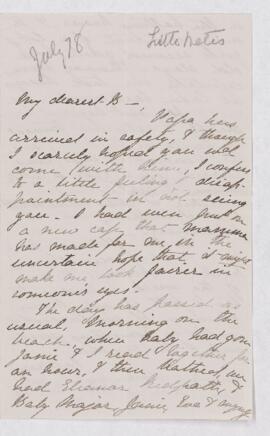 July 78
Little Metis
My dearest B—,
Papa has
arrived in safety, & though
I scarcely hoped you wd
come with him, I confess
to a little feeling disap-
pointment in not seeing
you. I had even put on
a new cap that mamma
has made for me, in the
uncertain hope that it might
make me look fairer in
someone's eyes.
The day has passed as
usual, morning on the
beach, when baby had gone
Janie & I read together for
an hour, & then bathed, we
had Eleanor Redpath,
Baby Major Janie Eva &